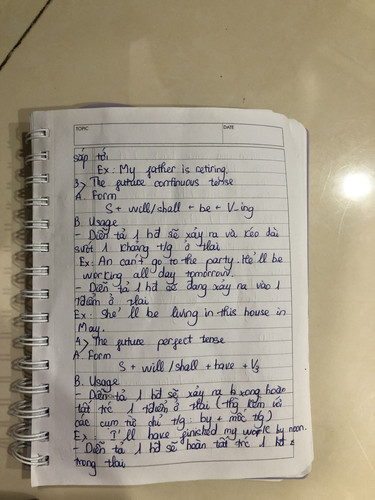 TOPIC DATE
sắp tới
Ex: My father is retiring.
3> The future continuous tense
A. Form
S + will/shall + be + V_ing
B. Usage
- Diễn tả 1 hđ sẽ xảy ra và kéo dài
suốt 1 khoảng t/g ở tlai
Ex: An can't go to the party. He'll be
working all day tomorrow.
- Diễn tả 1 hđ sẽ đang xảy ra vào 1
tđiểm ở tlai
Ex: She'll be living in this house in
May.
4> The future perfect tense
A. Form
S + will/shall + have + V3
B. Usage
- Diễn tả 1 hđ sẽ xảy ra xong hoàn
tất trc 1 tđiểm ở tlai (thg kèm với
các cụm từ chỉ t/g: by + mốc tg)
Ex: I'll have finished my work by noon.
- Diễn tả 1 hđ sẽ hoàn tất trc 1 hđ
trong tlai